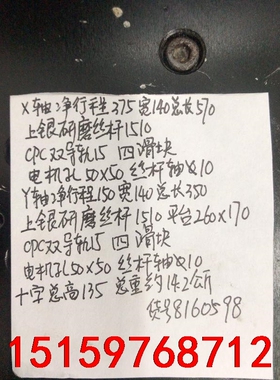 X轴净行程275宽140总长570
上银研磨丝杆1510
CPC双导轨15 四滑块
电机孔50X50 丝杆轴径10
Y轴净行程150宽140总长350
上银研磨丝杆1510平台260x170
CPC双导轨15 四滑块
电机孔50X50 丝杆轴径10
十字总高135 总重约14.2公斤
货号8160598
15159768712